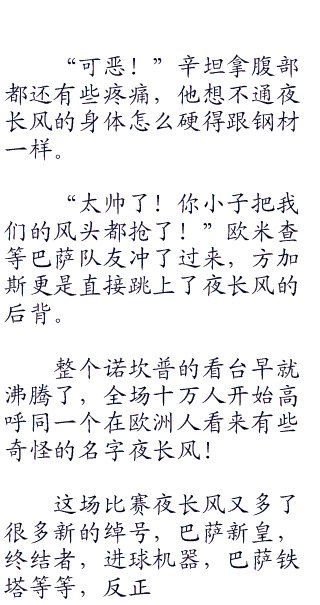 “可恶！”辛坦拿腹部
都还有些疼痛，他想不通夜
长风的身体怎么硬得跟钢材
一样。
“太帅了！你小子把我
们的风头都抢了！”欧米查
等巴萨队友冲了过来，方加
斯更是直接跳上了夜长风的
后背。
整个诺坎普的看台早就
沸腾了，全场十万人开始高
呼同一个在欧洲人看来有些
奇怪的名字夜长风！
这场比赛夜长风又多了
很多新的绰号，巴萨新皇，
终结者，进球机器，巴萨铁
塔等等，反正